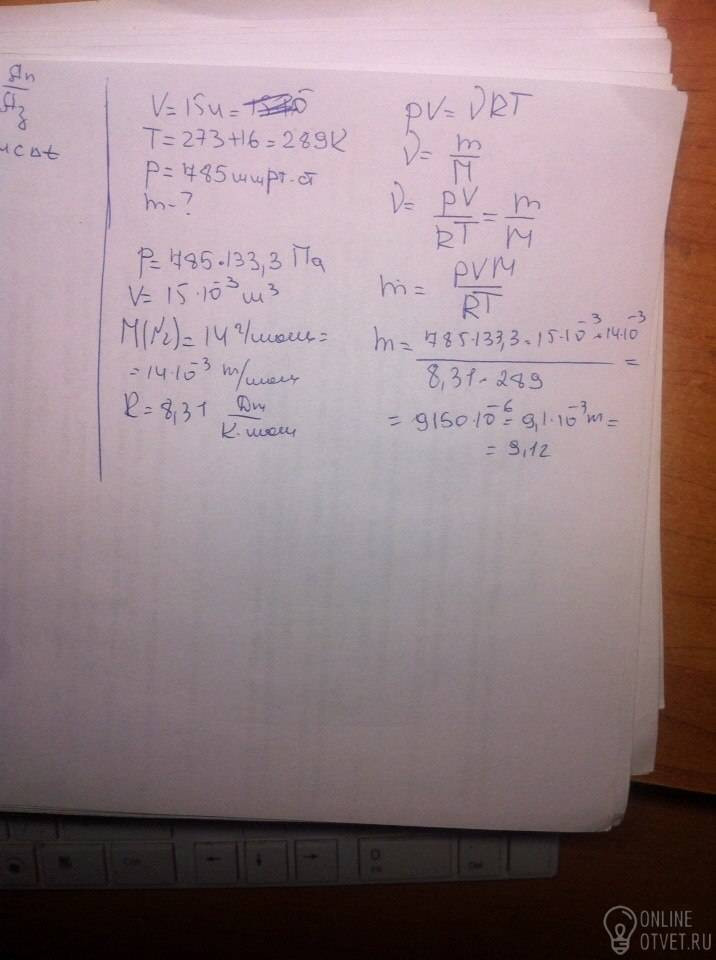 Aп
Aз
mcΔt
V=15л=
T=273+16=289К
P=785ммрт.ст
m-?
P=785·133,3 Па
V=15·10⁻³м³
M(N₂)=14г/моль=
=14·10⁻³ кг/моль
R=8,31 Дж/К·моль
pV=νRT
ν=m/M
ν=pV/RT=m/M
m=pVM/RT
m=785·133,3·15·10⁻³·14·10⁻³/8,31·289=
=9150·10⁻⁶=9,1·10⁻³кг=
=9,1г
ONLINE
OTVET.RU